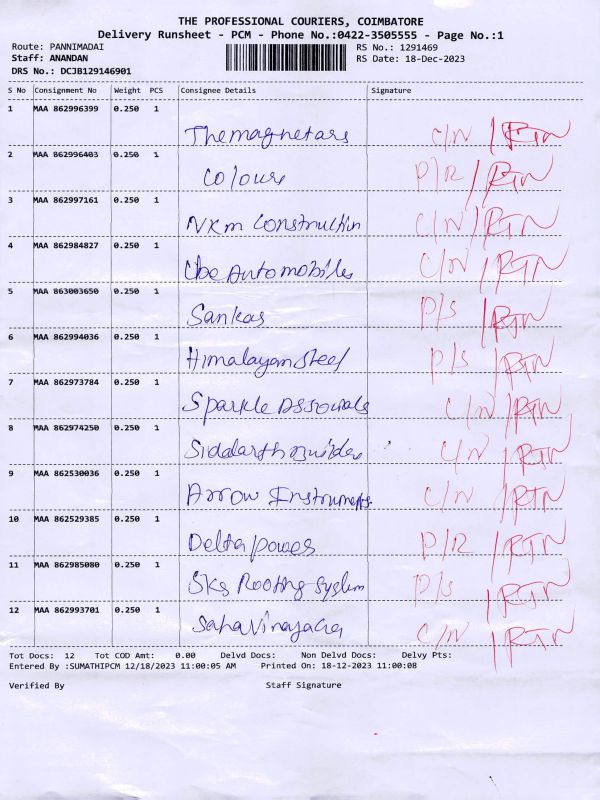 THE PROFESSIONAL COURIERS, COIMBATORE
Delivery Runsheet - PCM - Phone No.:0422-3505555 - Page No.:1
Route: PANNIMADAI RS No.: 1291469
Staff: ANANDAN RS Date: 18-Dec-2023
DRS No.: DCJB129146901
S No Consignment No Weight PCS Consignee Details Signature
1 MAA 862996399 0.250 1
Themagnetars C/N /RTN
2 MAA 862996403 0.250 1
Colours P/R /RTN
3 MAA 862997161 0.250 1
NKm Construction C/N /RTN
4 MAA 862984827 0.250 1
Cbe Automobiles C/N /RTN
5 MAA 863003650 0.250 1
Sankas P/S /RTN
6 MAA 862994036 0.250 1
Himalayan Steel P/S /RTN
7 MAA 862973784 0.250 1
Sparkle Associats C/N /RTN
8 MAA 862974250 0.250 1
Siddarth Builders C/N /RTN
9 MAA 862530036 0.250 1
Arrow Instruments. C/N /RTN
10 MAA 862529385 0.250 1
Delta power P/R /RTN
11 MAA 862985080 0.250 1
Sks Roofing System P/S /RTN
12 MAA 862993701 0.250 1
C/N /RTN
Tot Docs: 12 Tot COD Amt: 0.00 Delvd Docs: Non Delvd Docs: Delvy Pts:
Entered By :SUMATHIPCM 12/18/2023 11:00:05 AM Printed On: 18-12-2023 11:00:08
Verified By Staff Signature